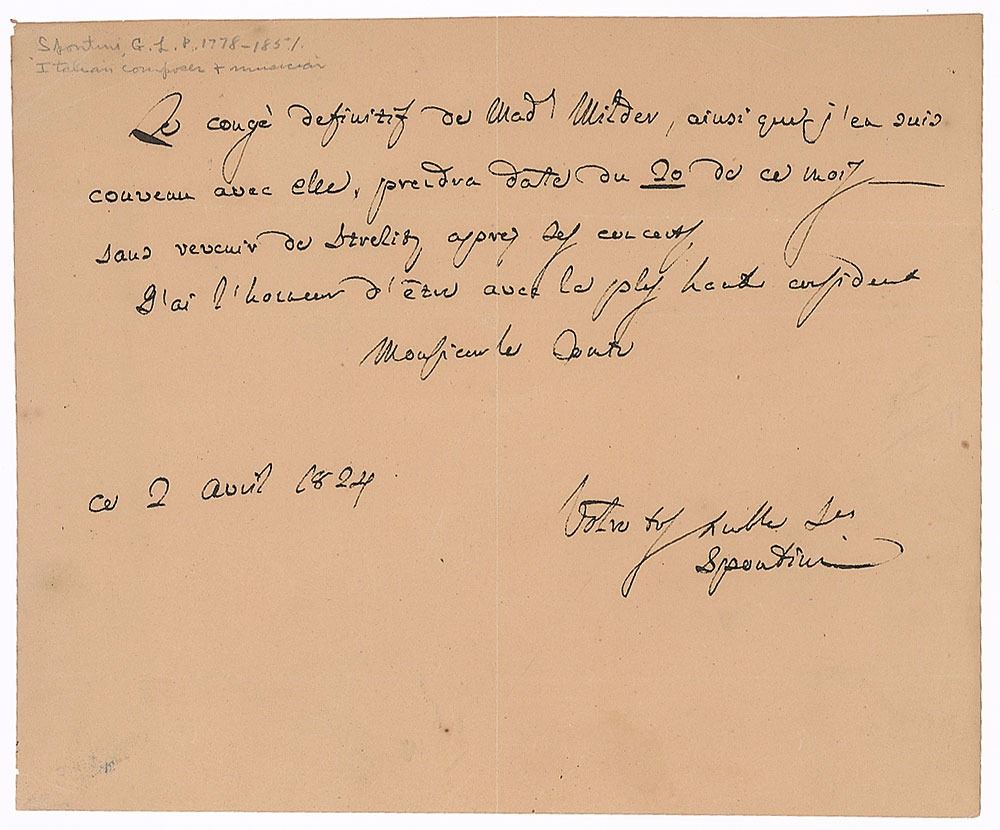 Spontini, G. L. P. 1778-1851.
Italian composer + musician
Le congé definitif de Mad.e Milder, ainsi que j'en suis
convenu avec elle, prendra date du 20 de ce mois
sans revenir de Strelitz après ses concerts,
J'ai l'honneur d'être avec la plus haute
Monsieur le Comte
ce 2 avril 1824
Votre très humble Ser
Spontini